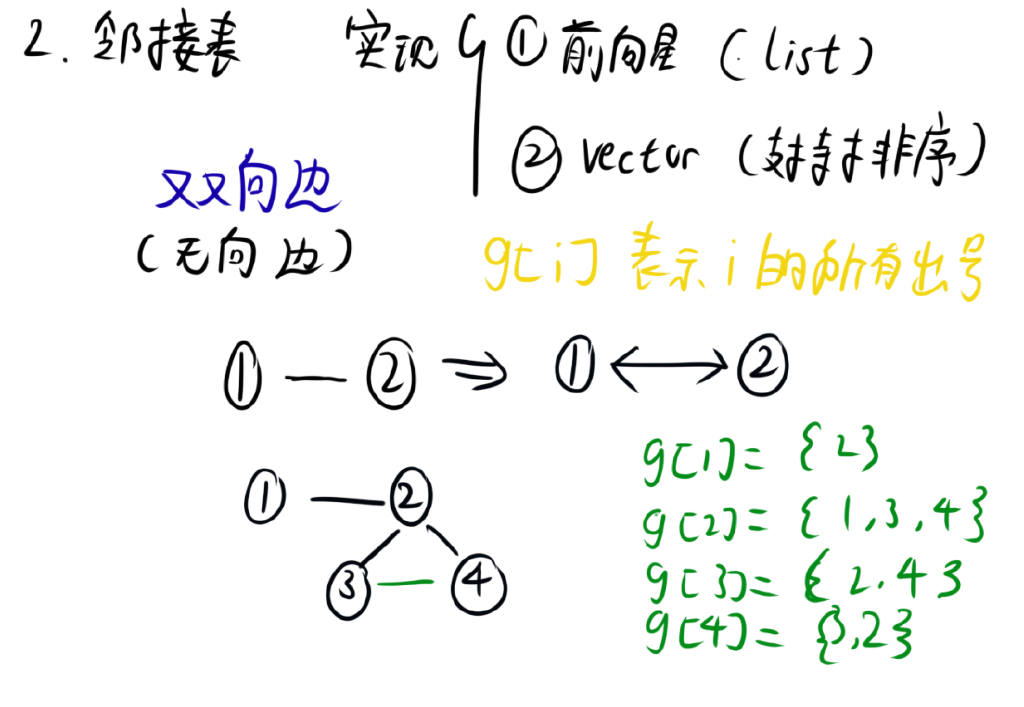 2. 邻接表 实现 ① 前向星 (list)
② vector (支持排序)
双向边
(无向边)
g[i] 表示 i 的所有出号
① — ② ⇒ ① ⟷ ②
g[1] = {2}
① — ②
g[2] = {1,3,4}
③ — ④
g[3] = {2.4}
g[4] = {3,2}